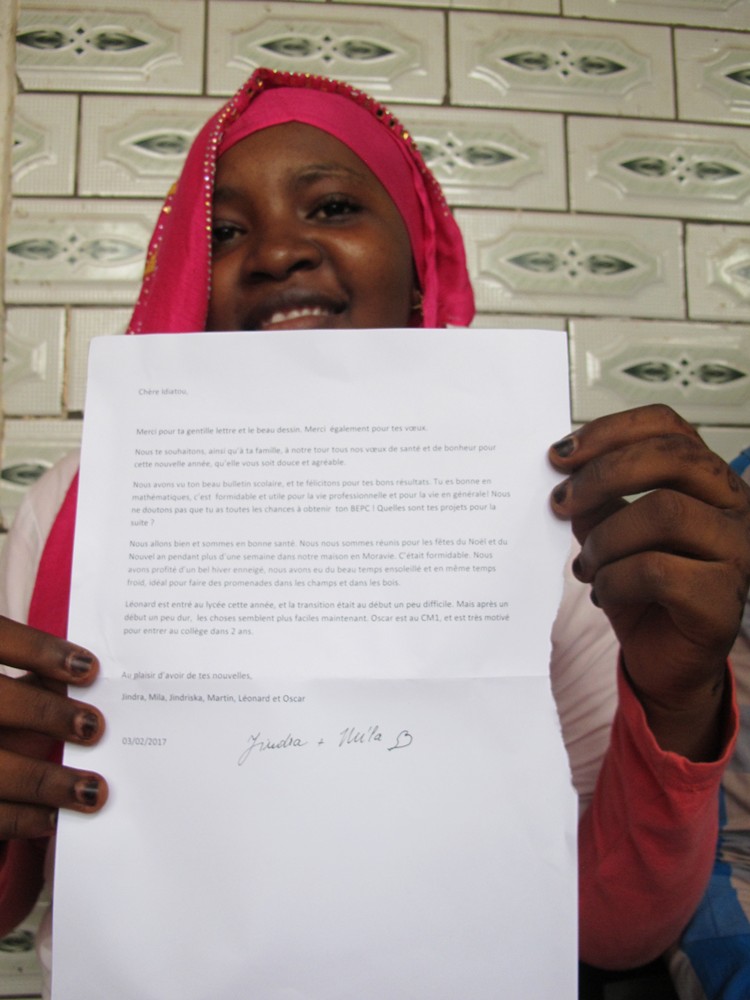 Chère Idiatou,
Merci pour ta gentille lettre et le beau dessin. Merci également pour tes vœux.
Nous te souhaitons, ainsi qu'à ta famille, à notre tour tous nos vœux de santé et de bonheur pour
cette nouvelle année, qu'elle vous soit douce et agréable.
Nous avons vu ton beau bulletin scolaire, et te félicitons pour tes bons résultats. Tu es bonne en
mathématiques, c'est formidable et utile pour la vie professionnelle et pour la vie en générale! Nous
ne doutons pas que tu as toutes les chances à obtenir ton BEPC ! Quelles sont tes projets pour la
suite ?
Nous allons bien et sommes en bonne santé. Nous nous sommes réunis pour les fêtes du Noël et du
Nouvel an pendant plus d'une semaine dans notre maison en Moravie. C'était formidable. Nous
avons profité d'un bel hiver enneigé, nous avons eu du beau temps ensoleillé et en même temps
froid, idéal pour faire des promenades dans les champs et dans les bois.
Léonard est entré au lycée cette année, et la transition était au début un peu difficile. Mais après un
début un peu dur, les choses semblent plus faciles maintenant. Oscar est au CM1, et est très motivé
pour entrer au collège dans 2 ans.
Au plaisir d'avoir de tes nouvelles,
Jindra, Mila, Jindriska, Martin, Léonard et Oscar
03/02/2017 Jindra + Mila